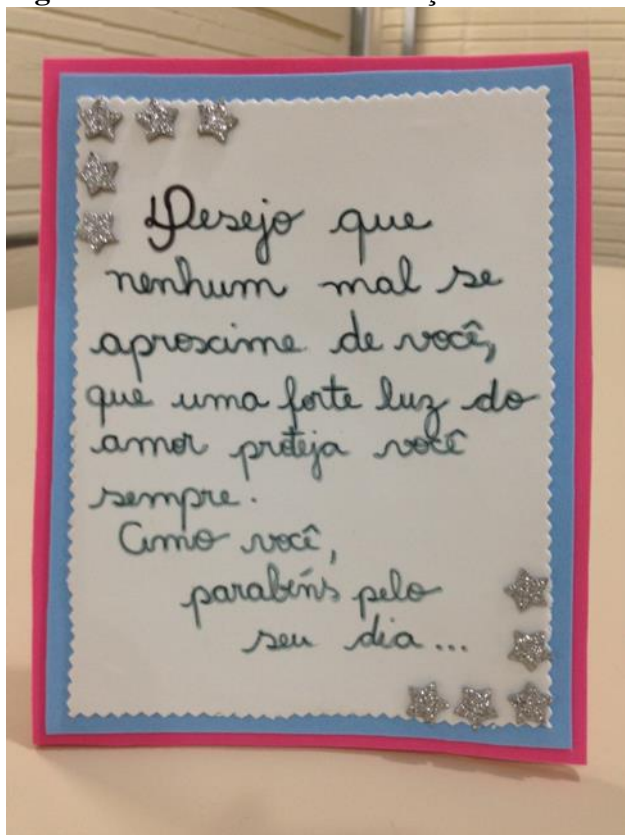 Desejo que
nenhum mal se
aproxime de você,
que uma forte luz do
amor proteja você
sempre.
Amo você,
parabéns pelo
seu dia...